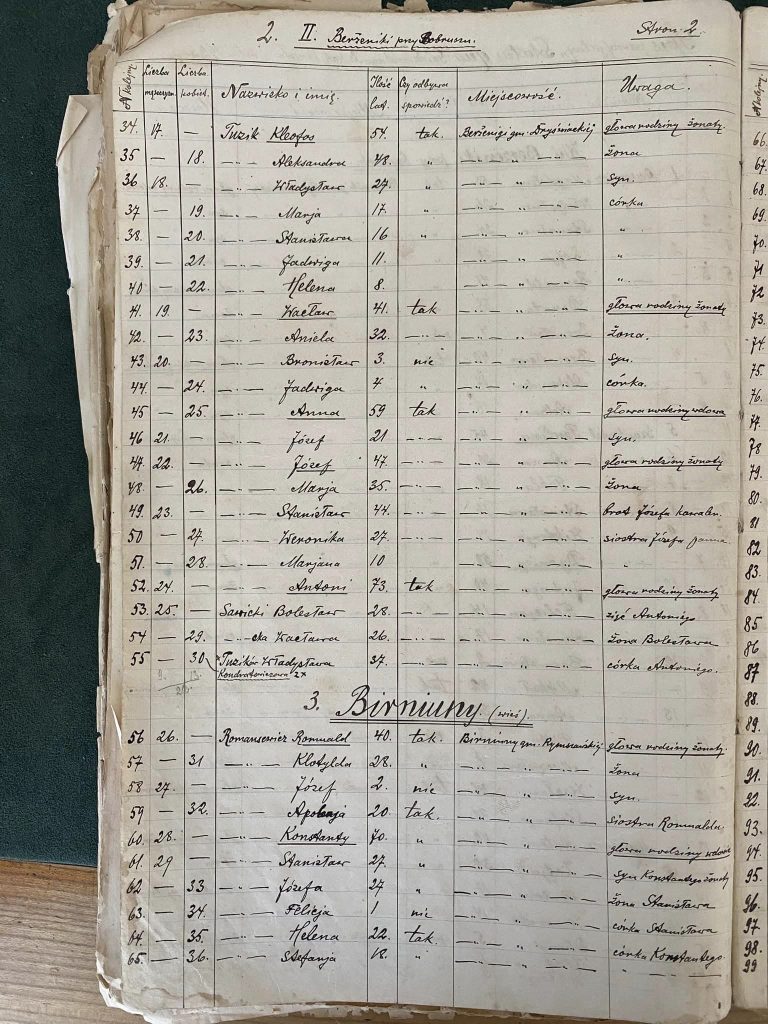 2. II. Berżeniki przy Dobrunu. Stron. 2.
N kolejny Liczba mężczyzn. Liczba kobiet. Nazwisko i imię. Ilość lat. Czy odbywa spowiedź? Miejscowość. Uwaga.
34. 17. — Tuzik Kleofos 54. tak. Berżenigi gm. Dryświackiej głowa rodziny żonaty.
35 — 18. —„— Aleksandra 48. „ —„— „ —„— żona
36 18. — —„— Władysław 27. „ —„— „ —„— syn.
37 — 19. —„— Marja 17. „ —„— „ —„— córka
38. — 20. —„— Stanisława 16 „ —„— „ —„— „
39. — 21. —„— Jadwiga 11. „ —„— „ —„— „
40 — 22. —„— Helena 8. „ —„— „ —„— „
41. 19. — —„— Wacław 41. tak —„— „ —„— głowa rodziny żonaty
42. — 23. —„— Aniela 32. —„— —„— „ —„— żona.
43. 20. — —„— Bronisław 3. nie —„— „ —„— syn.
44. — 24. —„— Jadwiga 4 „ —„— „ —„— córka.
45 — 25. —„— Anna 59 tak —„— „ —„— głowa rodziny wdowa
46 21. — —„— Józef 21 —„— —„— „ —„— syn.
47. 22. — —„— Józef 47. —„— —„— „ —„— głowa rodziny żonaty
48. — 26. —„— Marja 35. —„— —„— „ —„— żona
49. 23. — —„— Stanisław 44. —„— —„— „ —„— brat Józefa kawaler.
50 — 27. —„— Weronika 27. —„— —„— „ —„— siostra Józefa panna
51. — 28. —„— Marjana 10 —„— „ —„— „
52. 24. — —„— Antoni 73. tak —„— „ —„— głowa rodziny żonaty
53. 25. — Sawicki Bolesław 28. —„— —„— „ —„— zięć Antoniego
54 — 29. —„—cka Wacława 26. —„— —„— „ —„— żona Bolesława
55 — 30 Tuzików Władysława 37. —„— —„— „ —„— córka Antoniego.
Kondratowiczowa 2x
3. Birniuny (wieś).
56 26. — Romancewicz Romuald 40. tak. Birniuny gm. Rymszańskiej głowa rodziny żonaty.
57 — 31 —„— Klotylda 28. „ —„— „ —„— żona
58 27. — —„— Józef 2. nie —„— „ —„— syn.
59 — 32. —„— Apolonja 20. tak. —„— „ —„— siostra Romualda.
60. 28. — —„— Konstanty 70. „ —„— „ —„— głowa rodziny wdowiec
61. 29 — —„— Stanisław 27 „ —„— „ —„— syn Konstantego żonaty
62 — 33 —„— Józefa 27 „ —„— „ —„— żona Stanisława
63. — 34. —„— Felicja 1 nie —„— „ —„— córka Stanisława
64. — 35. —„— Helena 22. tak. —„— „ —„— córka Konstantego
65. — 36. —„— Stefanja 18. „ —„— „ —„— „ —„—
66.
67.
68.
69.
70.
71
72
73.
74.
75.
76.
77.
78
79.
80.
81
82
83.
84.
85
86
87
88.
89.
90.
91.
92.
93.
94.
95.
96.
97.
98.
99